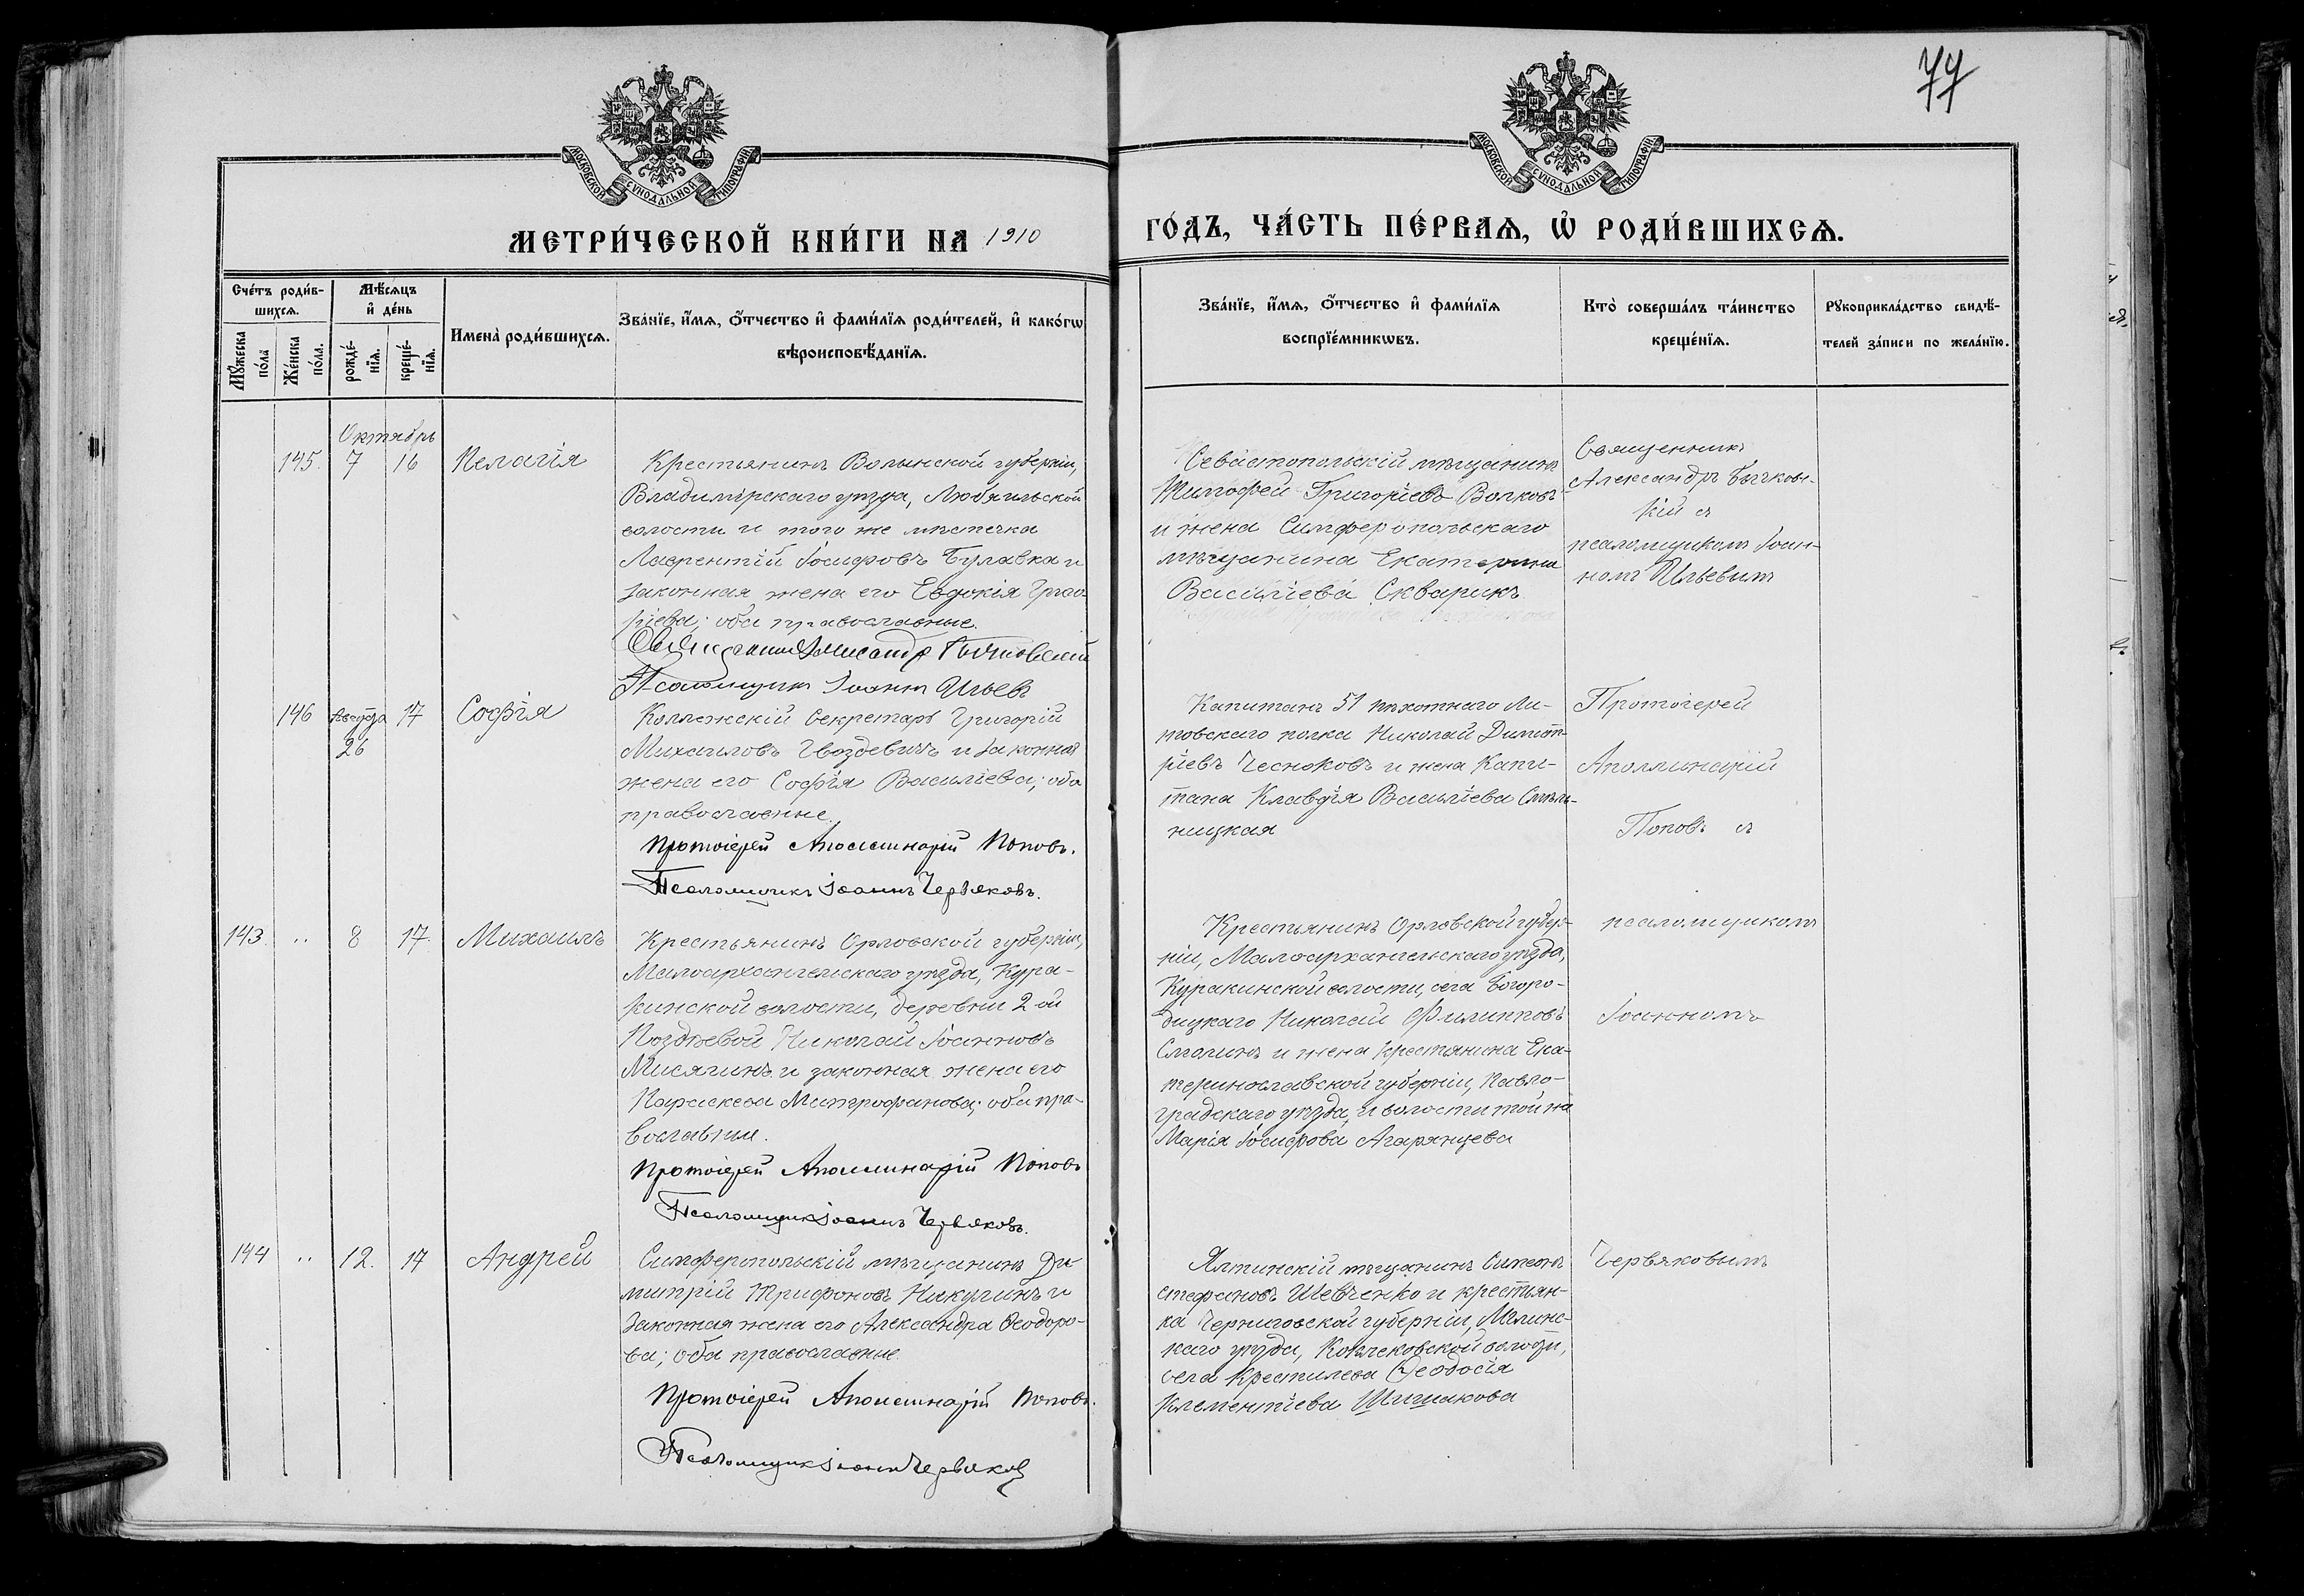 77
МОСКОВСКОЙ СѴНОДАЛЬНОЙ ТИПОГРАФІИ
МОСКОВСКОЙ СѴНОДАЛЬНОЙ ТИПОГРАФІИ
МЕТРИ́ЧЕСКОЙ КНИ́ГИ НА 1910
ГО́ДЪ, ЧА́СТЬ ПЕ́РВАѦ, Ѡ҆ РОДИ́ВШИХСѦ.
Сче́тъ роди́в-
шихсѧ.
Мꙋ́жеска по́ла
Же́нска по́ла.
Мѣ́сѧцъ
и҆ де́нь
рожде́-
нїѧ.
креще́-
нїѧ.
Имена̀ роди́вшихсѧ.
Зва́нїе, и҆́мѧ, ѻ҆́тчество и҆ фами́лїѧ роди́телей, и҆ како́гѡ
вѣроисповѣ́данїѧ.
Зва́нїе, и҆́мѧ, ѻ҆́тчество и҆ фами́лїѧ
воспрїе́мникѡвъ.
Кто̀ соверша́лъ та́инство
креще́нїѧ.
Рꙋкоприкла́дство свидѣ́-
телей за́писи по жела́нїю.
Октябрь
145. 7 16 Пелагія
Крестьянинъ Волынской губерніи,
Владимірскаго уѣзда, Любяильской
волости и того же мѣстечка
Лаврентій Іосифовъ Булавка и
законная жена его Евдокія Григо-
ріева; оба православные.
Священникъ Александръ Бычковскій
Псаломщикъ Іоаннъ Ильев
Севастопольскій мѣщанинъ
Тимофей Григоріевъ Волковъ
и жена Симферопольскаго
мѣщанина Екатерина
Василіева Скварикъ
Священникъ
Александръ Бычковс-
кій съ
псаломщикомъ Іоан-
номъ Ильевымъ
146 Августа 26 17 Софія
Коллежскій Секретарь Григорій
Михаиловъ Гвоздевичъ и законная
жена его Софія Василіева; оба
православные.
Протоіерей Аполлинарій Поповъ.
Псаломщикъ Іоаннъ Червяковъ.
Капитанъ 51 пѣхотнаго Ли-
товскаго полка Николай Димит-
ріевъ Чесноковъ и жена Капи-
тана Клавдія Василіева Смѣль-
ницкая
Протоіерей
Аполлинарій
Поповъ съ
143. .. 8 17. Михаилъ
Крестьянинъ Орловской губерніи,
Малоархангельскаго уѣзда, Кура-
кинской волости, деревни 2-ой
Поздѣевой Николай Іоанновъ
Мисягинъ и законная жена его
Параскева Митрофанова; оба пра-
вославные.
Протоіерей Аполлинарій Поповъ
Псаломщикъ Іоаннъ Червяковъ.
Крестьянинъ Орловской губер-
ніи, Малоархангельскаго уѣзда,
Куракинской волости, села Богоро-
дицкаго Николай Филипповъ
Смолинъ и жена крестьянина Ека-
теринославской губерніи, Павло-
градскаго уѣзда, и волости той же
Марія Іосифова Агарянцева
псаломщикомъ
Іоанномъ
144 .. 12. 17 Андрей
Симферопольскій мѣщанинъ Ди-
митрій Трифоновъ Никулинъ и
законная жена его Александра Ѳеодоро-
ва; оба православные.
Протоіерей Аполлинарій Поповъ.
Псаломщикъ Іоаннъ Червяковъ
Ялтинскій мѣщанинъ Симеонъ
Стефановъ Шевченко и крестьян-
ка Черниговской губерніи, Мглинс-
каго уѣзда, волости,
села Феодосія
Климентіева Шишакова
Червяковымъ